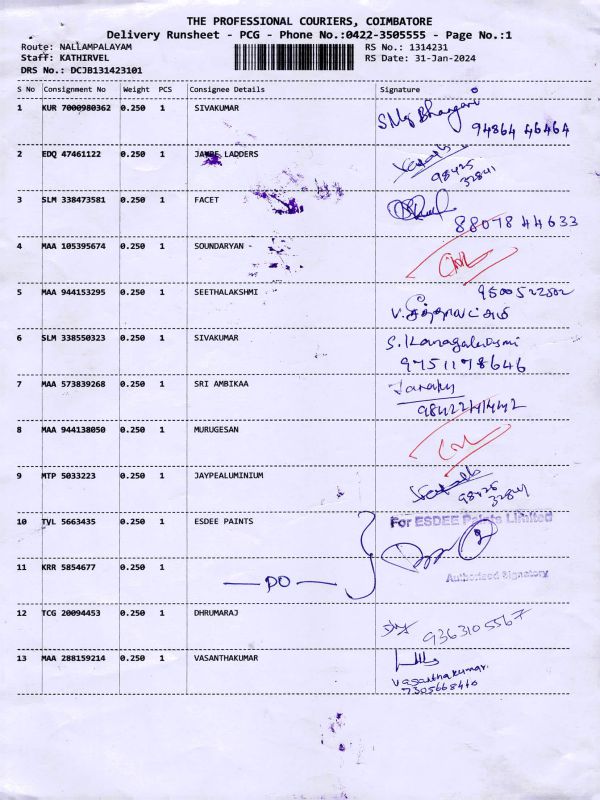 THE PROFESSIONAL COURIERS, COIMBATORE
Delivery Runsheet - PCG - Phone No.:0422-3505555 - Page No.:1
Route: NALLAMPALAYAM RS No.: 1314231
Staff: KATHIRVEL RS Date: 31-Jan-2024
DRS No.: DCJB131423101
S No Consignment No Weight PCS Consignee Details Signature
1 KUR 7000980362 0.250 1 SIVAKUMAR
94864 46464
2 EDQ 47461122 0.250 1 JAYPE LADDERS
98425
32841
3 SLM 338473581 0.250 1 FACET
88078 44633
4 MAA 105395674 0.250 1 SOUNDARYAN
5 MAA 944153295 0.250 1 SEETHALAKSHMI
V. சீத்தாலட்சுமி
6 SLM 338550323 0.250 1 SIVAKUMAR
9751178646
7 MAA 573839268 0.250 1 SRI AMBIKAA
8 MAA 944138050 0.250 1 MURUGESAN
9 MTP 5033223 0.250 1 JAYPEALUMINIUM
98425
32841
10 TVL 5663435 0.250 1 ESDEE PAINTS For ESDEE Paints Limited
11 KRR 5854677 0.250 1
DO
Authorised Signatory
12 TCG 20094453 0.250 1 DHRUMARAJ
9363105567
13 MAA 288159214 0.250 1 VASANTHAKUMAR
Vasanthakumar
7305668410